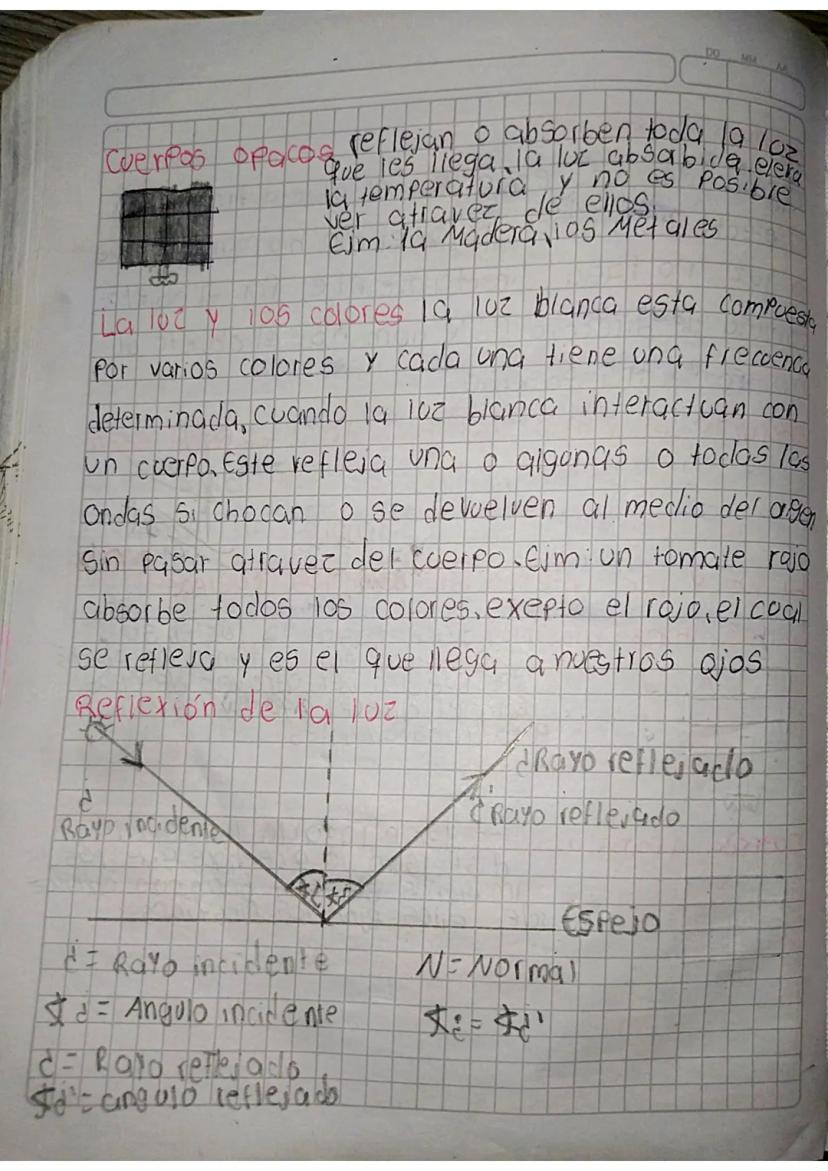 DD MM AA
Cuerpos opacos reflejan o absorben toda la luz
que les llega, la luz absabida eleva
la temperatura y no es posible
ver atravez de ellos
Ejm: la Madera, los Metales
La luz y los colores la luz blanca esta compuesta
por varios colores y cada una tiene una frecuencia
determinada, cuando la luz blanca interactuan con
un cuerpo, Este refleja una o algunas o todas las
ondas si chocan o se devuelven al medio del origen
sin pasar atravez del cuerpo. Ejm: un tomate rojo
absorbe todos los colores, exepto el rojo, el cual
se refleja y es el que llega a nuestros ojos
Reflexión de la luz
Rayo reflejado
Rayo incidente
Rayo reflejado
Espejo
i = Rayo incidente
N = Normal
∡i = Angulo incidente
∡i = ∡i'
i = Rayo reflejado
∡i' = angulo reflejado